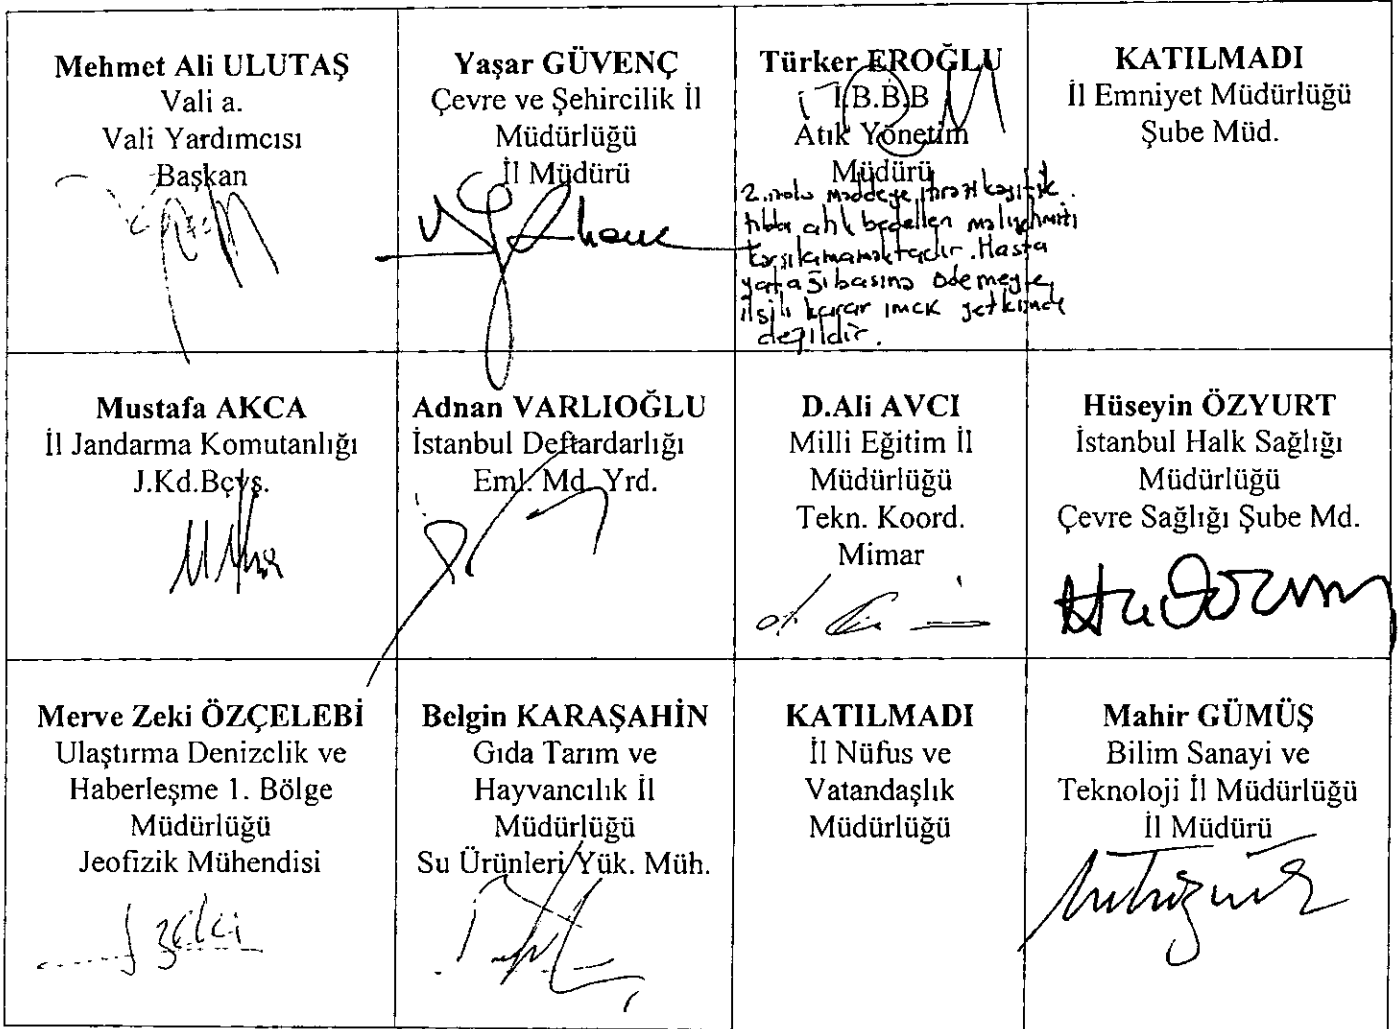 Mehmet Ali ULUTAŞ
Vali a.
Vali Yardımcısı
Başkan
Yaşar GÜVENÇ
Çevre ve Şehircilik İl
Müdürlüğü
İl Müdürü
Türker EROĞLU
İ.B.B.B
Atık Yönetim
Müdürü
2. nolu maddeye
tıbbi atık bedelleri maliyetini
karşılamamaktadır. Hasta
yatağı basına ödemeyle
ilgili karar
değildir.
KATILMADI
İl Emniyet Müdürlüğü
Şube Müd.
Mustafa AKCA
İl Jandarma Komutanlığı
J.Kd.Bçvş.
Adnan VARLIOĞLU
İstanbul Deftardarlığı
Eml. Md. Yrd.
D.Ali AVCI
Milli Eğitim İl
Müdürlüğü
Tekn. Koord.
Mimar
Hüseyin ÖZYURT
İstanbul Halk Sağlığı
Müdürlüğü
Çevre Sağlığı Şube Md.
Merve Zeki ÖZÇELEBİ
Ulaştırma Denizclik ve
Haberleşme 1. Bölge
Müdürlüğü
Jeofizik Mühendisi
Belgin KARAŞAHİN
Gıda Tarım ve
Hayvancılık İl
Müdürlüğü
Su Ürünleri Yük. Müh.
KATILMADI
İl Nüfus ve
Vatandaşlık
Müdürlüğü
Mahir GÜMÜŞ
Bilim Sanayi ve
Teknoloji İl Müdürlüğü
İl Müdürü